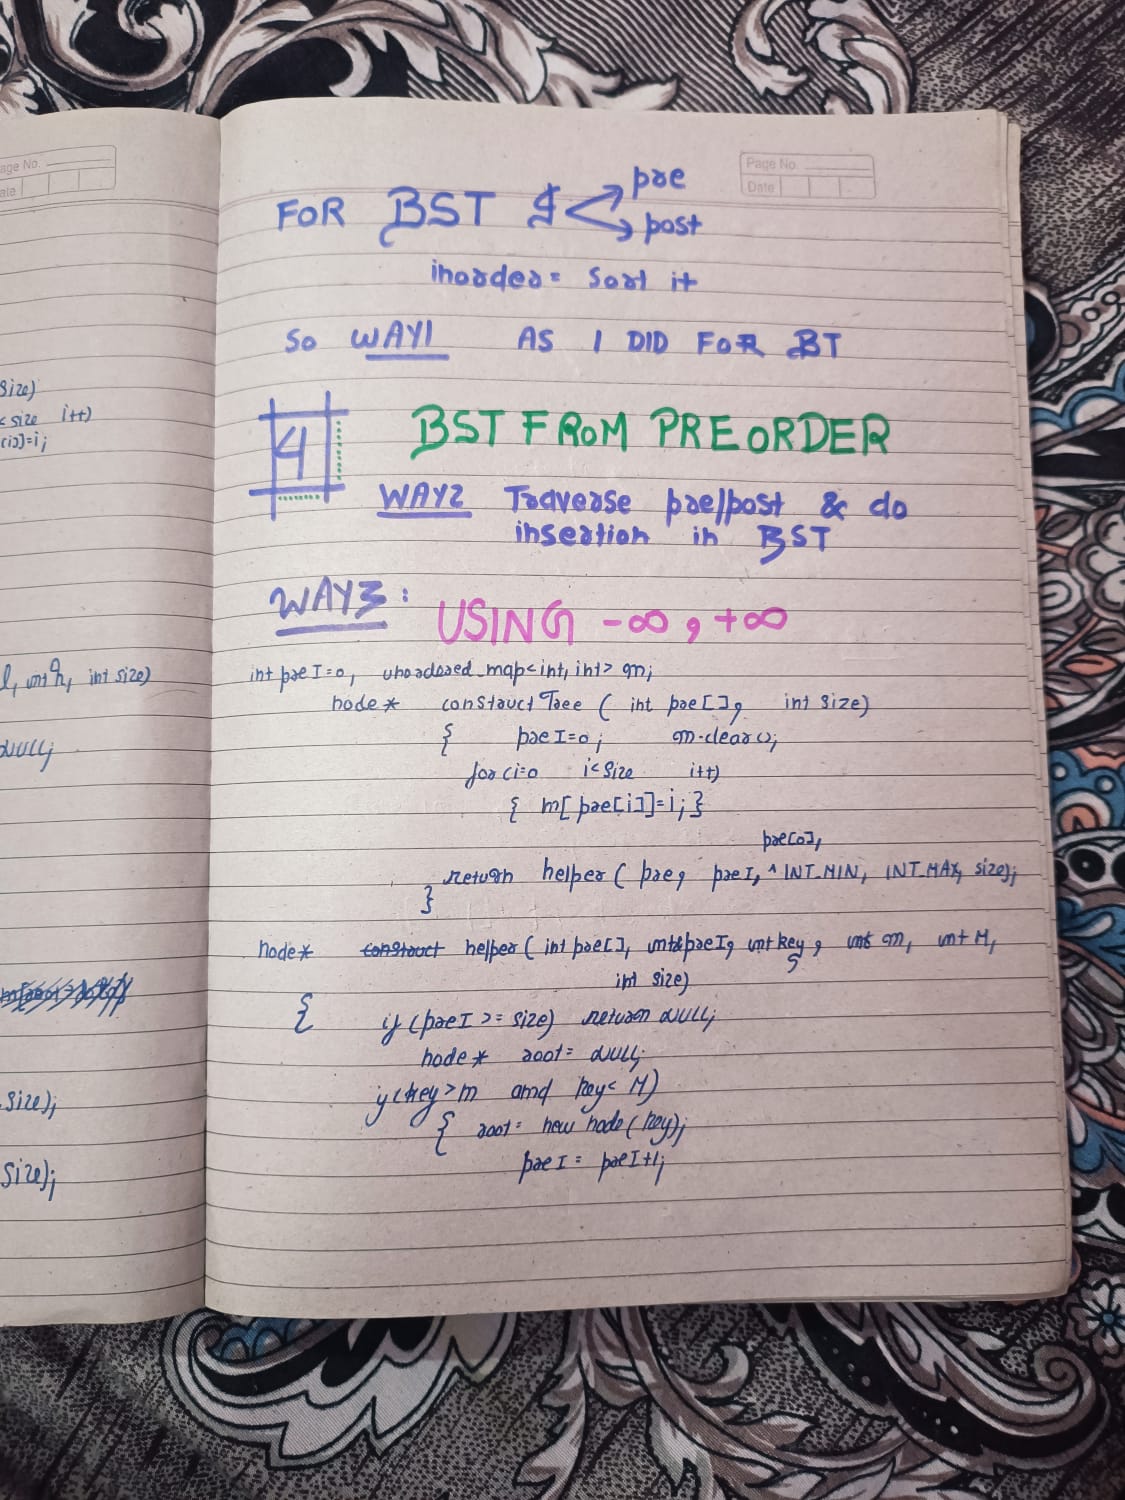 age No.
ate
size)
< size i++)
[i]]=i;
l, int h, int size)
NULL;
size);
size);
Page No.
Date
FOR BST & pre
post
inorder = Sort it
SO WAY1 AS I DID FOR BT
4 BST FROM PREORDER
WAY2 Traverse pre/post & do
insertion in BST
WAY3: USING -∞, +∞
int preI=0, unordered_map<int, int> m;
node* constructTree ( int pre[], int size)
{ preI=0; m.clear();
for(i=0 i<size i++)
{ m[pre[i]]=i; }
pre[0],
return helper( pre, preI, ^ INT_MIN, INT_MAX, size);
}
node* construct helper( int pre[], int&preI, int key, int m, int M,
int size)
{ if (preI >= size) return NULL;
node* root= NULL;
if(key>m and key< M)
{ root= new node(key);
preI = preI+1;